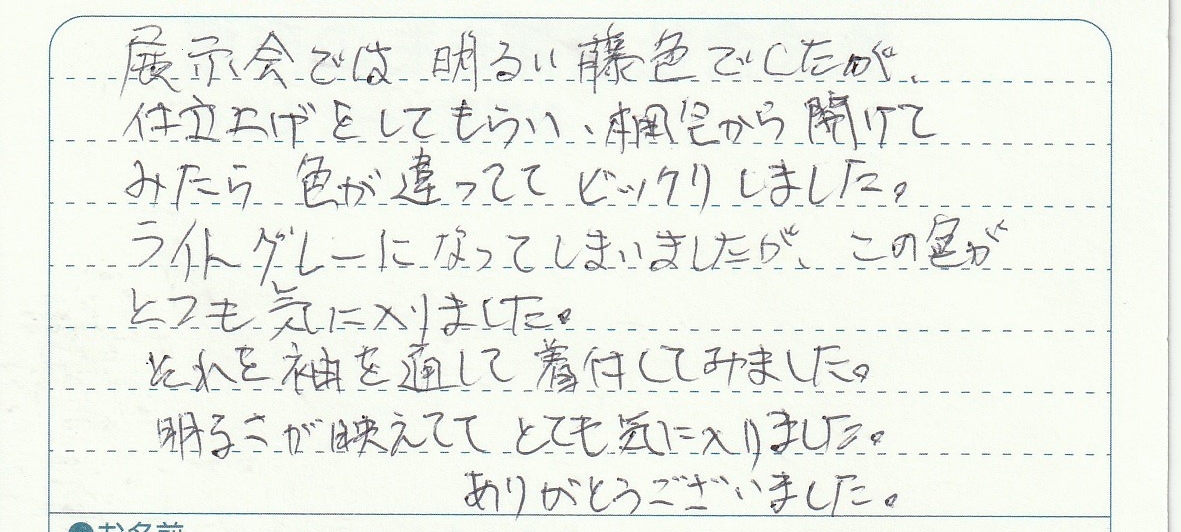 展示会では明るい藤色でしたが、
仕立上げをしてもらい、梱包から開けて
みたら色が違ってて ビックリしました。
ライトグレーになってしまいましたが、この色が
とても気に入りました。
それを袖を通して着付してみました。
明るさが映えてて とても気に入りました。
ありがとうございました。
●お名前